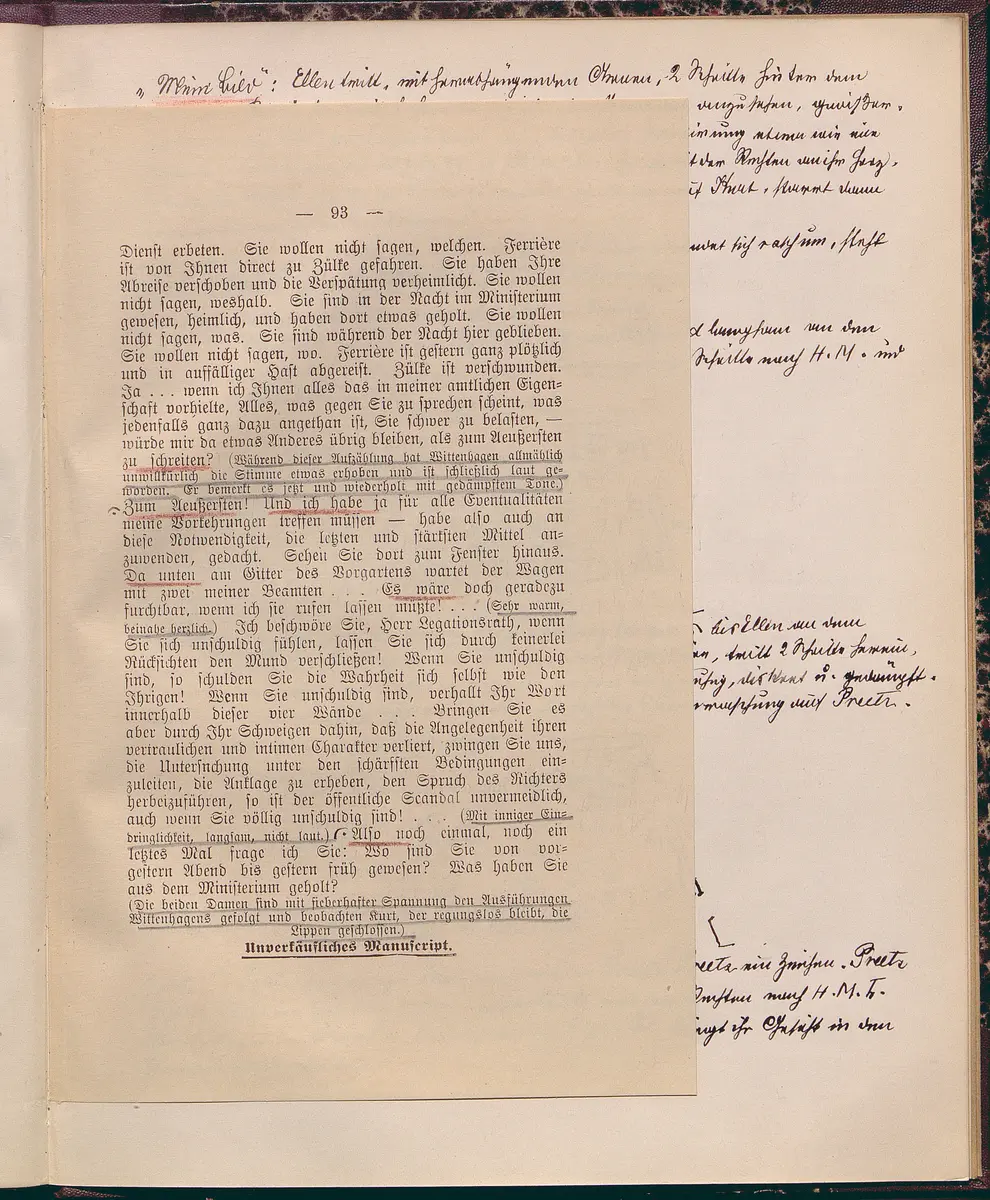 „Mein Bild“: Ellen tritt, mit herabhängenden Armen, 2 Schritte hinter dem
anzusehen, gewisser-
etwa wie eine
der Rechten an ihr Herz,
starrt dann
sich rasch um, steht
langsam an den
Schritte nach H. M. und
— 93 —
Dienst erbeten. Sie wollen nicht sagen, welchen. Ferrière
ist von Ihnen direct zu Zülke gefahren. Sie haben Ihre
Abreise verschoben und die Verspätung verheimlicht. Sie wollen
nicht sagen, weshalb. Sie sind in der Nacht im Ministerium
gewesen, heimlich, und haben dort etwas geholt. Sie wollen
nicht sagen, was. Sie sind während der Nacht hier geblieben.
Sie wollen nicht sagen, wo. Ferrière ist gestern ganz plötzlich
und in auffälliger Hast abgereist. Zülke ist verschwunden.
Ja . . . wenn ich Ihnen alles das in meiner amtlichen Eigen-
schaft vorhielte, Alles, was gegen Sie zu sprechen scheint, was
jedenfalls ganz dazu angethan ist, Sie schwer zu belasten, —
würde mir da etwas Anderes übrig bleiben, als zum Aeußersten
zu schreiten? (Während dieser Aufzählung hat Wittenhagen allmählich
unwillkürlich die Stimme etwas erhoben und ist schließlich laut ge-
worden. Er bemerkt es jetzt und wiederholt mit gedämpftem Tone.)
Zum Aeußersten! Und ich habe ja für alle Eventualitäten
meine Vorkehrungen treffen müssen — habe also auch an
diese Notwendigkeit, die letzten und stärksten Mittel an-
zuwenden, gedacht. Sehen Sie dort zum Fenster hinaus.
Da unten am Gitter des Vorgartens wartet der Wagen
mit zwei meiner Beamten . . . Es wäre doch geradezu
furchtbar, wenn ich sie rufen lassen müßte! . . . (Sehr warm,
beinahe herzlich.) Ich beschwöre Sie, Herr Legationsrath, wenn
Sie sich unschuldig fühlen, lassen Sie sich durch keinerlei
Rücksichten den Mund verschließen! Wenn Sie unschuldig
sind, so schulden Sie die Wahrheit sich selbst wie den
Ihrigen! Wenn Sie unschuldig sind, verhallt Ihr Wort
innerhalb dieser vier Wände . . . Bringen Sie es
aber durch Ihr Schweigen dahin, daß die Angelegenheit ihren
vertraulichen und intimen Charakter verliert, zwingen Sie uns,
die Untersuchung unter den schärfsten Bedingungen ein-
zuleiten, die Anklage zu erheben, den Spruch des Richters
herbeizuführen, so ist der öffentliche Scandal unvermeidlich,
auch wenn Sie völlig unschuldig sind! . . . (Mit inniger Ein-
dringlichkeit, langsam, nicht laut.) Also noch einmal, noch ein
letztes Mal frage ich Sie: Wo sind Sie von vor-
gestern Abend bis gestern früh gewesen? Was haben Sie
aus dem Ministerium geholt?
(Die beiden Damen sind mit fieberhafter Spannung den Ausführungen
Wittenhagens gefolgt und beobachten Kurt, der regungslos bleibt, die
Lippen geschlossen.)
Unverkäufliches Manuscript.
bis Ellen an dem
tritt 2 Schritte herein,
diskret u. gedämpft.
auf Preetz.
ein Zeichen. Preetz
Rechten nach H. M. T.
ihr Gesicht in den